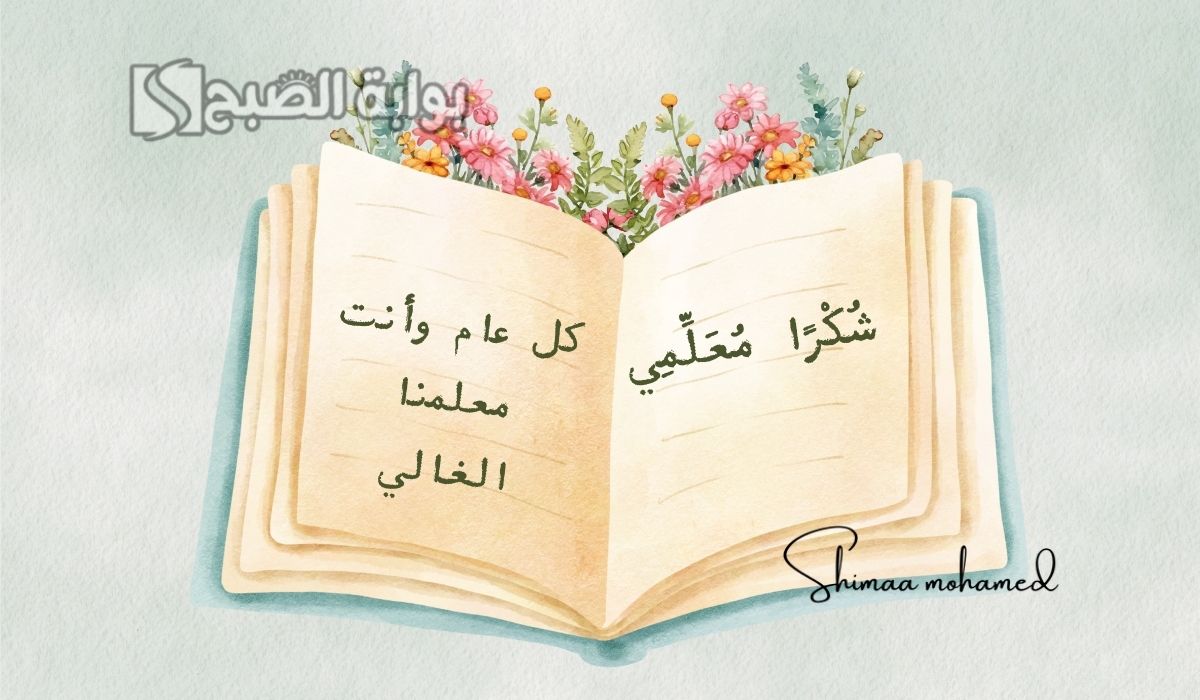 بوابة الصبح
شُكْرًا مُعَلِّمِي
كل عام وأنت
معلمنا
الغالي
Shimaa mohamed